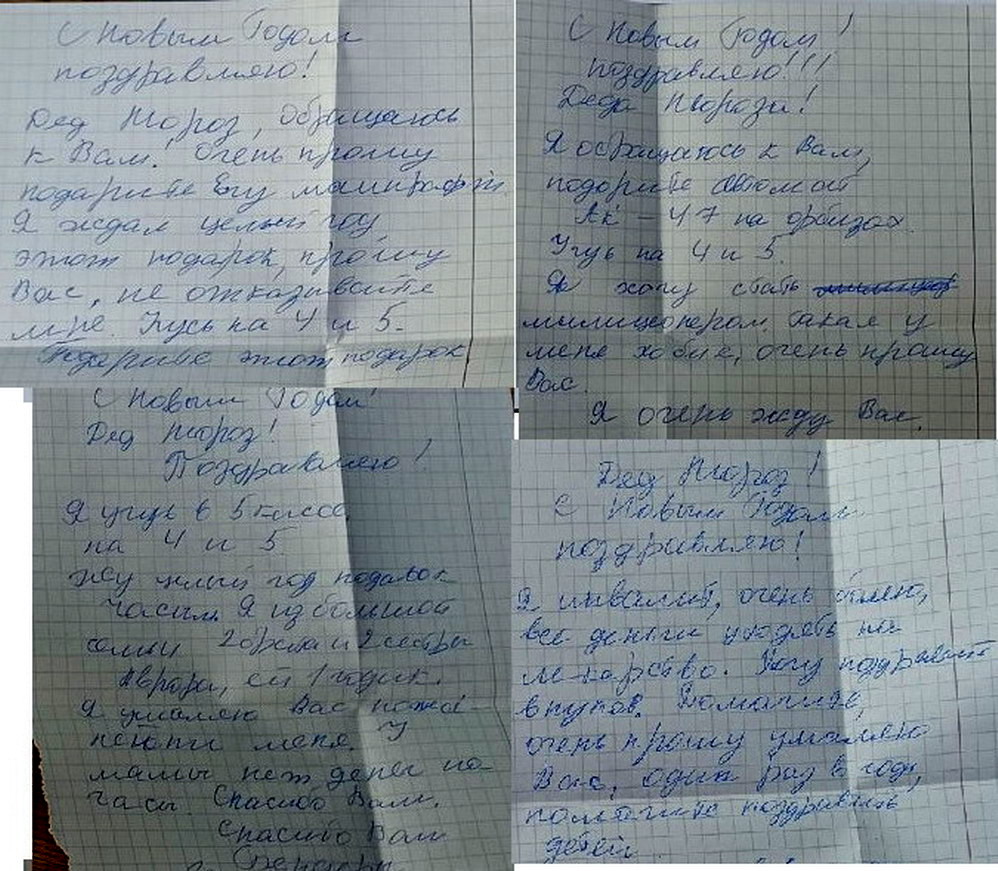 С Новым Годом
поздравляю!
Дед Мороз, Обращаюсь
к Вам! Очень прошу
подарите Егу
Я ждал целый год
этот подарок, прошу
Вас, не отказывайте
мне. Учусь на 4 и 5.
Подарите этот подарок
С Новым Годом!
поздравляю!!!
Деда Мороза!
Я обращаюсь к Вам,
подорите автомат
Ак-47 на орбизах.
Учусь на 4 и 5.
Я хочу стать
милиционером. Такая у
меня хобие, очень прошу
Вас.
Я очень жду Вас.
С Новым Годом!
Дед Мороз!
Поздравляю!
Я учусь в 5 классе
на 4 и 5
жду целый год подарок
часы. Я из большой
семьи 2 брата и 2 сестры
Аврора, ей 1 годик.
Я умоляю Вас
меня. У
мамы нет денег на
часы. Спасибо Вам.
Спасибо Вам
Дед Мороз!
С Новым Годом
поздравляю!
Я инвалит, очень болею,
все деньги уходять на
лекарство. Хочу поздравить
внуков.
очень прошу умаляю
Вас, один раз в году,
помогите поздравить
детей